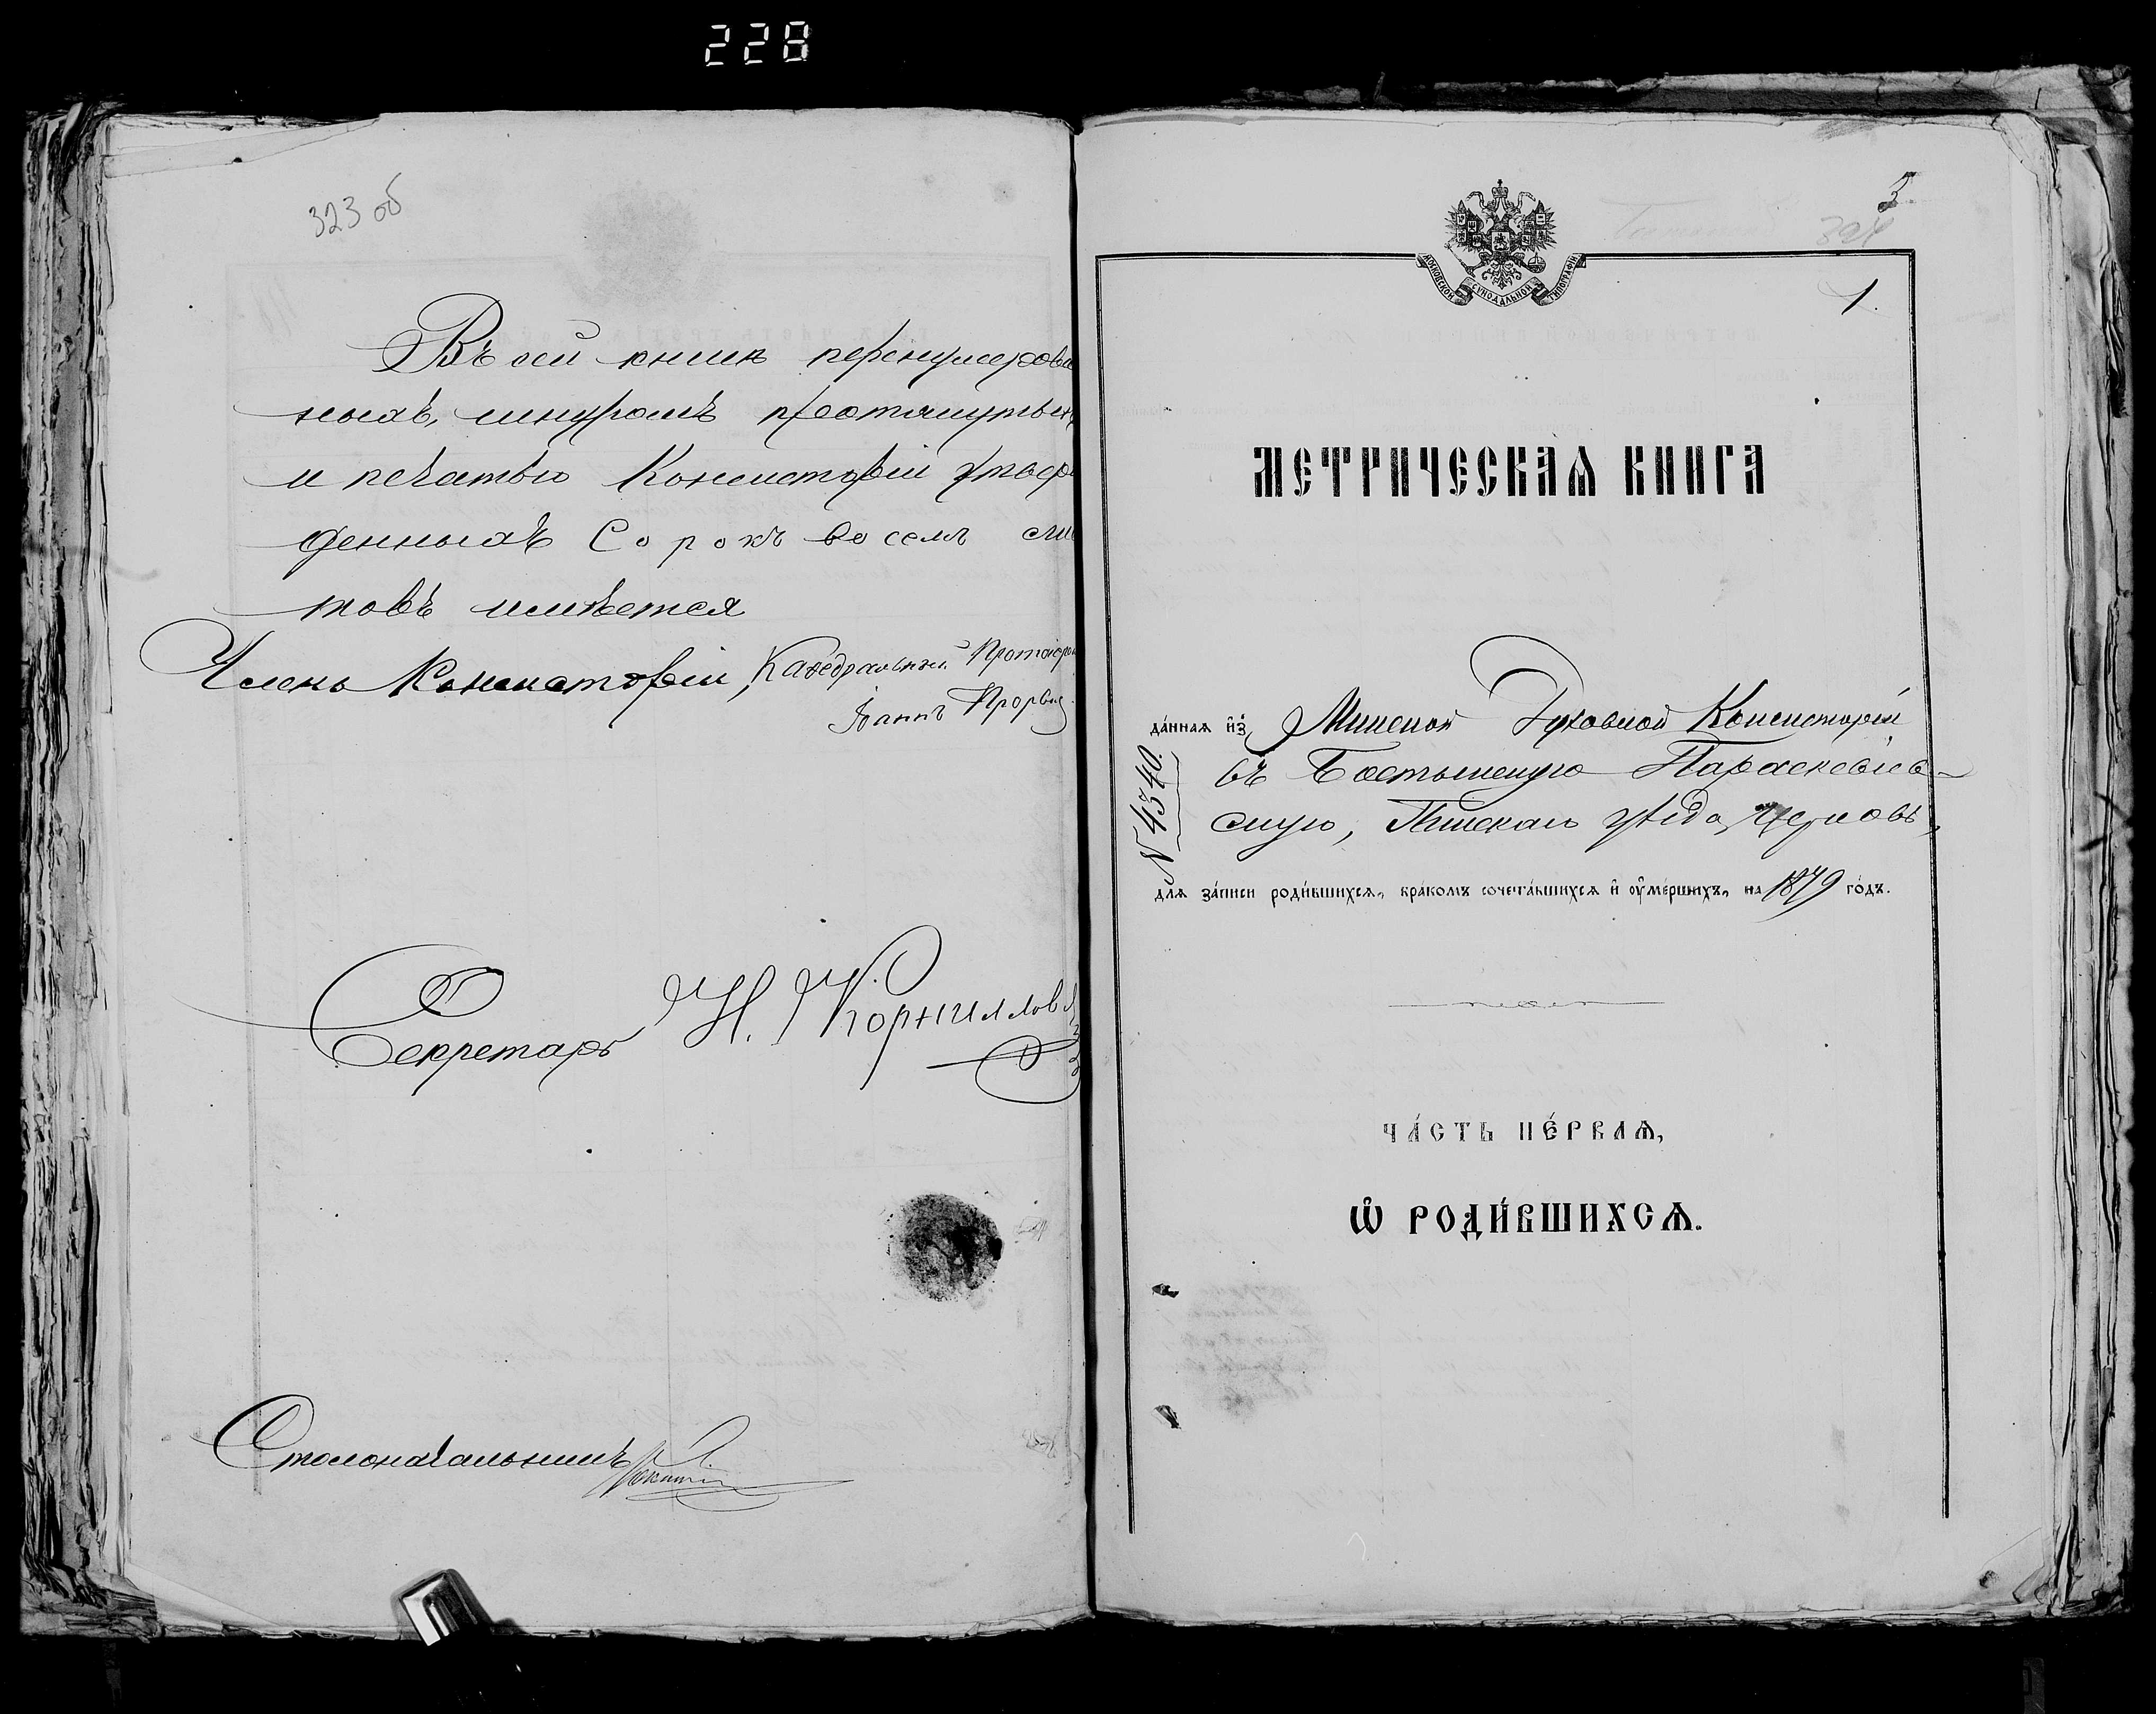 228
323 об
Въ сей книгѣ перенумерован
ныхъ, шнуромъ протянутыхъ
и печатью Консисторіи утверж
денныхъ Сорокъ восемь лис
товъ имѣется
Членъ Консисторіи, Каѳедральный Протоіерей
Іоаннъ Прорвич
Секретарь Н. Корниллов
Столоначальникъ
3
324
МОСКОВСКОЙ СѴНОДАЛЬНОЙ ТИПОГРАФІИ
1.
МЕТРИЧЕСКАѦ КНИГА
да́ннаѧ и҆з̾ Минской Духовной Консисторіи
въ Бостынскую Параскевіев-
скую, Пинскаго уѣзда, Церковь,
N 4340.
длѧ за́писи роди́вшихсѧ, бра́комъ сочета́вшихсѧ и҆ ᲂу҆ме́ршихъ, на 1879 го́дъ.
ЧА́СТЬ ПЕ́РВАѦ,
Ѽ РОДИ́ВШИХСѦ.